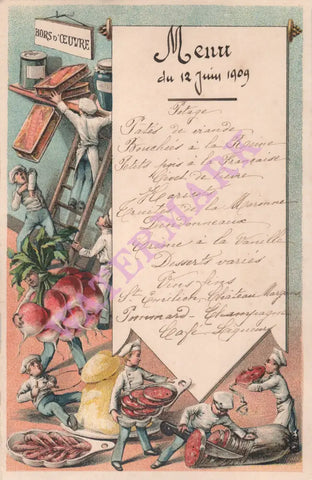 HORS D'ŒUVRE
Menu
du 12 Juin 1909
Potage
Patés de viande
Bouchées à la Reine
Petits pois à la Française
Haricots
de la Maronne
Dindonneaux
Crème à la Vanille
Desserts variés
Vins fins
St Emilion - Château Margaux
Pommard - Champagne
Café - Liqueurs
WATERMARK